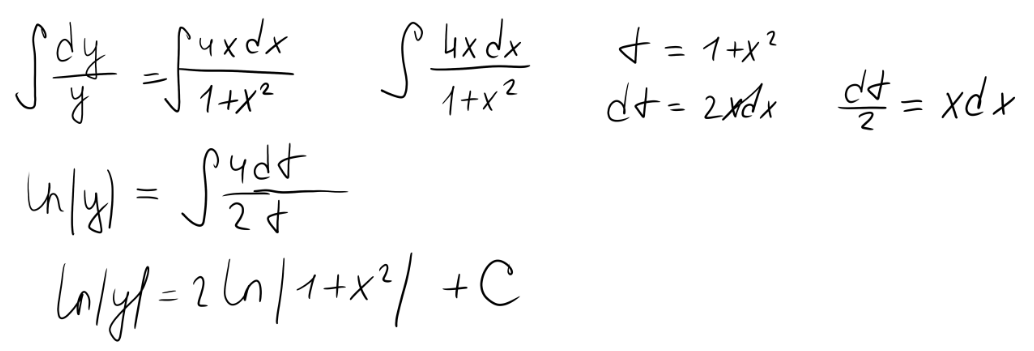 ∫ dy/y = ∫ 4xdx/1+x² ∫ 4xdx/1+x² t = 1+x²
dt = 2xdx dt/2 = xdx
ln|y| = ∫ 4dt/2t
ln|y| = 2 ln|1+x²| + C